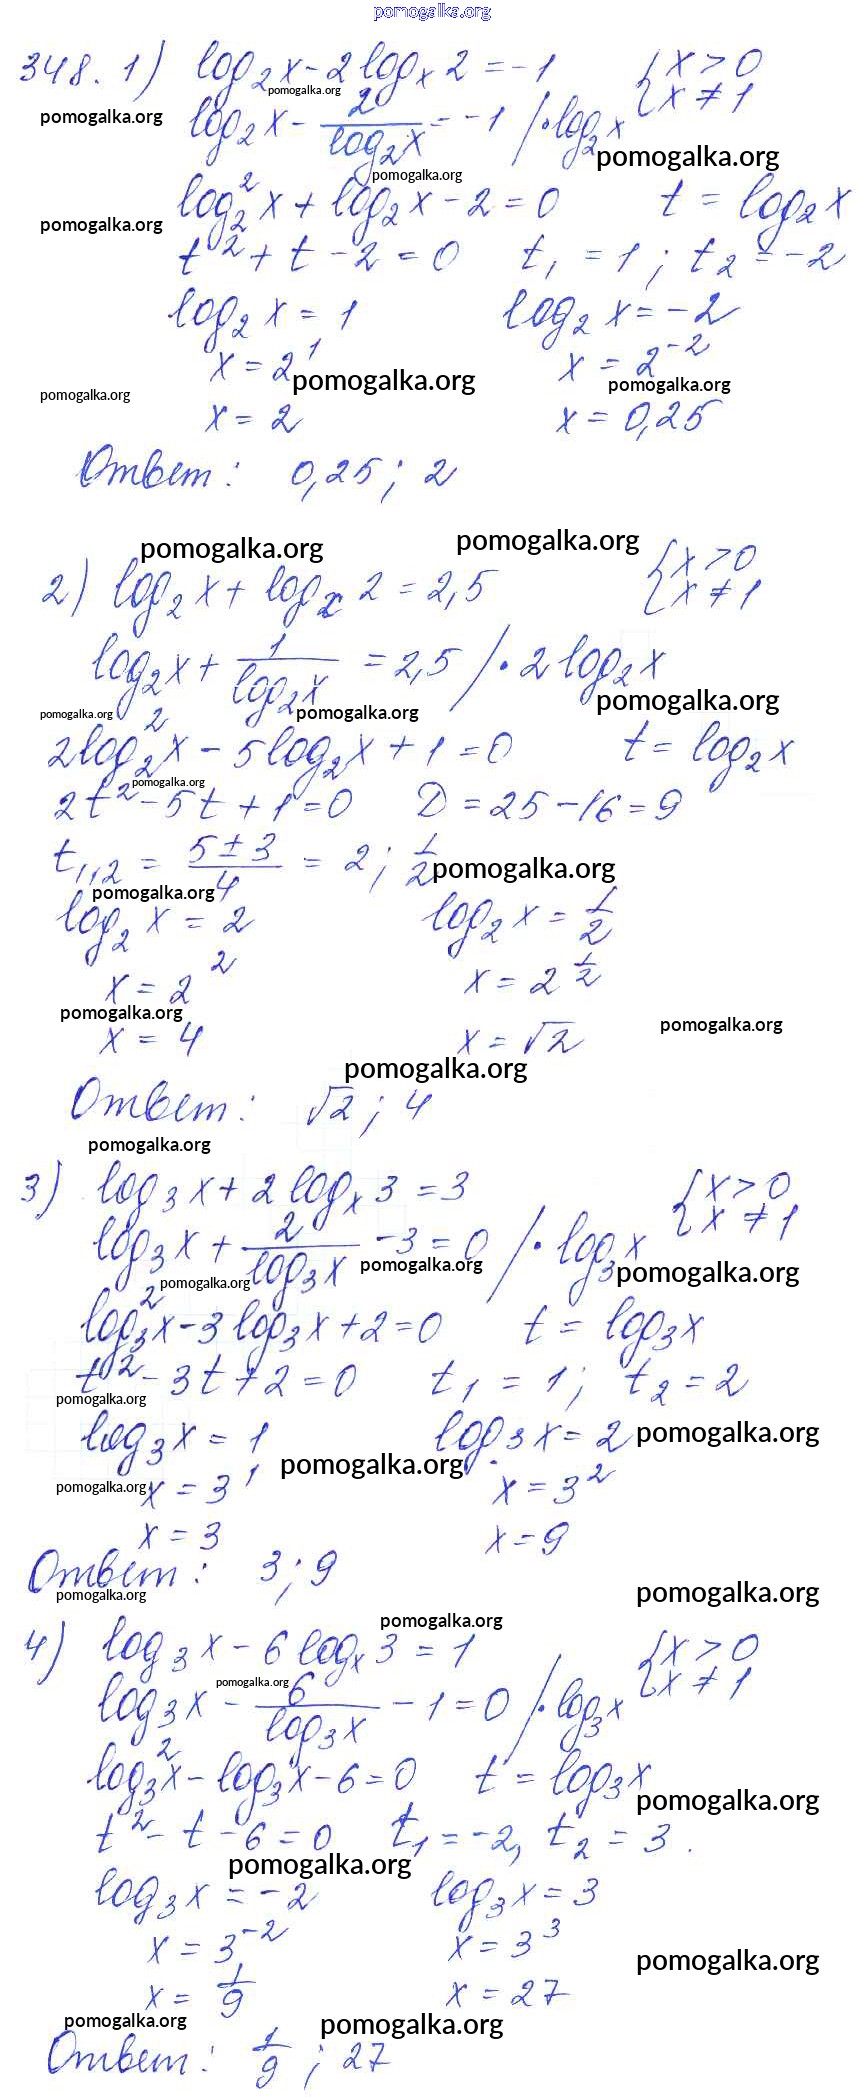 pomogalka.org
348. 1) log₂x - 2logₓ2 = -1 {x > 0
pomogalka.org
{x ≠ 1
pomogalka.org
log₂x - 2/log₂x = -1 / · log₂x
pomogalka.org
pomogalka.org
log₂²x + log₂x - 2 = 0 t = log₂x
pomogalka.org
t² + t - 2 = 0 t₁ = 1; t₂ = -2
log₂x = 1 log₂x = -2
x = 2¹ x = 2⁻²
pomogalka.org pomogalka.org
pomogalka.org
x = 2 x = 0,25
Ответ: 0,25; 2
pomogalka.org pomogalka.org
2) log₂x + logₓ2 = 2,5 {x > 0
{x ≠ 1
log₂x + 1/log₂x = 2,5 / · 2log₂x
pomogalka.org
pomogalka.org pomogalka.org
2log₂²x - 5log₂x + 1 = 0 t = log₂x
pomogalka.org
2t² - 5t + 1 = 0 D = 25 - 16 = 9
t₁,₂ = (5 ± 3)/4 = 2; 1/2
pomogalka.org
pomogalka.org
log₂x = 2 log₂x = 1/2
x = 2² x = 2^(1/2)
pomogalka.org
pomogalka.org
x = 4 x = √2
pomogalka.org
Ответ: √2; 4
pomogalka.org
3) log₃x + 2logₓ3 = 3 {x > 0
{x ≠ 1
log₃x + 2/log₃x - 3 = 0 / · log₃x
pomogalka.org pomogalka.org
pomogalka.org
log₃²x - 3log₃x + 2 = 0 t = log₃x
t² - 3t + 2 = 0 t₁ = 1; t₂ = 2
pomogalka.org
log₃x = 1 log₃x = 2
pomogalka.org
pomogalka.org
pomogalka.org
x = 3¹ x = 3²
x = 3 x = 9
Ответ: 3; 9
pomogalka.org pomogalka.org
pomogalka.org
4) log₃x - 6logₓ3 = 1 {x > 0
{x ≠ 1
pomogalka.org
log₃x - 6/log₃x - 1 = 0 / · log₃x
log₃²x - log₃x - 6 = 0 t = log₃x
pomogalka.org
t² - t - 6 = 0 t₁ = -2, t₂ = 3.
pomogalka.org
log₃x = -2 log₃x = 3
x = 3⁻² x = 3³
pomogalka.org
x = 1/9 x = 27
pomogalka.org pomogalka.org
Ответ: 1/9; 27